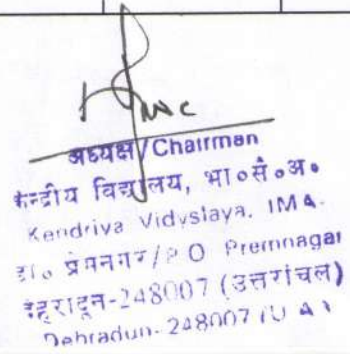 अध्यक्ष/Chairman
केन्द्रीय विद्यालय, भा०सै०अ०
Kendriya Vidyslaya, IMA.
डा० प्रेमनगर/P O Premnagar
देहरादून-248007 (उत्तरांचल)
Dehradun-248007 (U A)